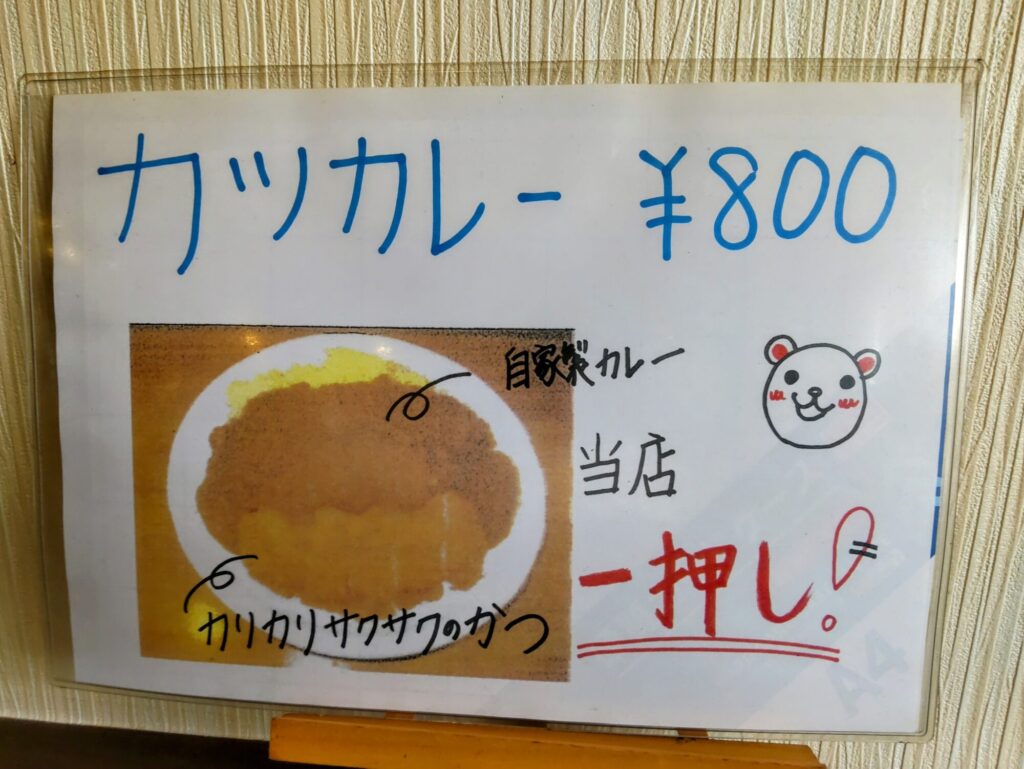 カツカレー ¥800
自家製カレー
当店
一押し!
カリカリサクサクのかつ
A4